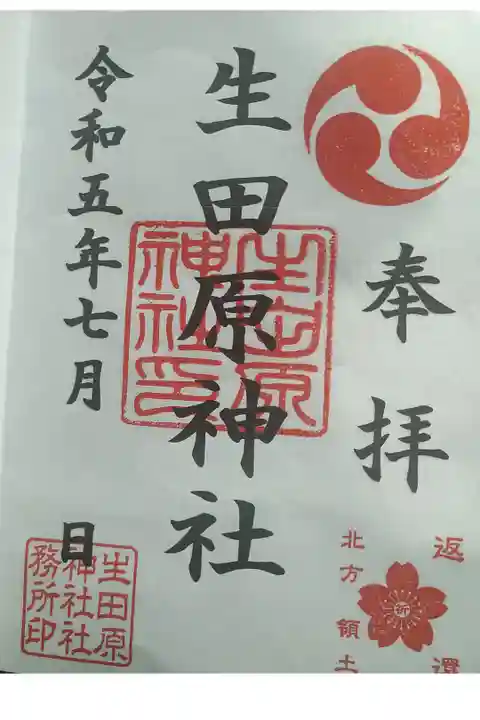 奉拝
生田原神社
令和五年七月 日
生田原
神社印
生田原
神社社
務所印
北方領土
返還
祈